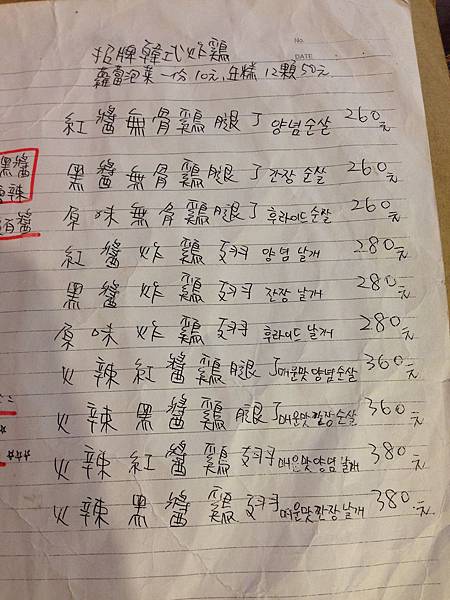 No.
DATE
招牌韓式炸鷄
蘿蔔泡菜一份10元,年糕12顆50元
紅醬無骨鷄腿丁 양념순살 260元
黑醬無骨鷄腿丁 간장 순살 260元
原味無骨鷄腿丁 후라이드순살 260元
紅醬炸鷄翅 양념 날개 280元
黑醬炸鷄翅 간장 날개 280元
原味炸鷄翅 후라이드 날개 280元
火辣紅醬鷄腿丁 매운맛양념순살 360元
火辣黑醬鷄腿丁 매운맛깐장순살 360元
火辣紅醬鷄翅 매운맛양념 날개 380元
火辣黑醬鷄翅 매운맛깐장날개 380元
黑醬
辣
醬
***